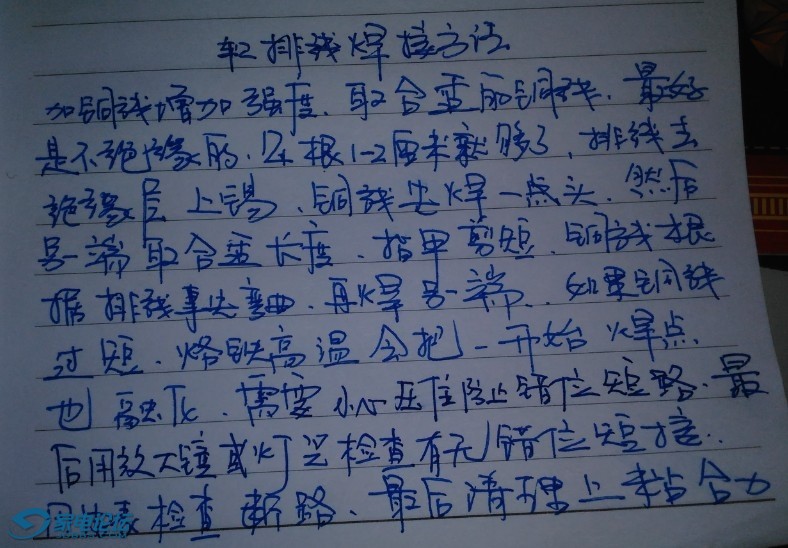 软排线焊接方法
加铜线增加强度、取合适的铜线、最好
是不绝缘的,24根1-2厘米就够了、排线去
绝缘层上锡、铜线先焊一点头、然后
另一端取合适长度、指甲剪短、铜线根
据排线事先弯曲、再焊另一端、如果铜线
过短、烙铁高温会把一开始焊点
也融化、需要小心压住防止错位短路、最
后用放大镜或灯光检查有无错位短接、
检查断路、最后清理上
家电论坛